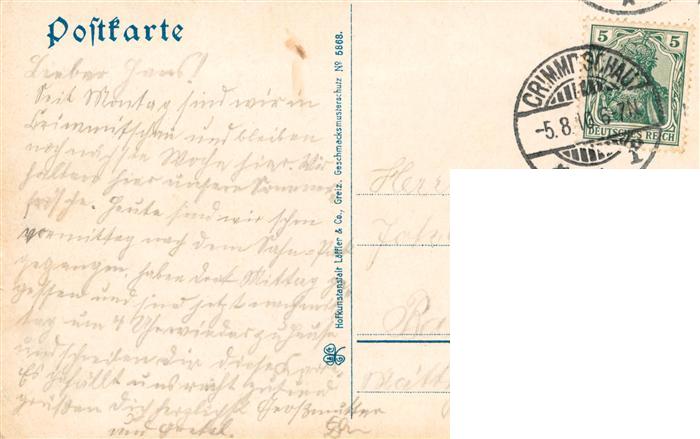 Postkarte
Lieber Hans!
Seit Montag sind wir in
Crimmitschau und bleiben
noch nächste Woche hier. Wir
halten hier unsere Sommer
frische. Heute sind wir schon
vormittag nach dem Sahn-
gegangen, haben dort Mittag ge
gessen und sind jetzt
tag um 4 Uhr wieder zu Hause
und schreiben Dir diese
Es gefällt uns recht gut und
grüßen Dich herzlichst Großmutter
und Gretel.
Hofkunstanstalt Löffler & Co., Greiz. Geschmacksmusterschutz № 5868.
CRIMMITSCHAU
-5.8. 6-7N.
1
5 5
DEUTSCHES REICH
Herrn